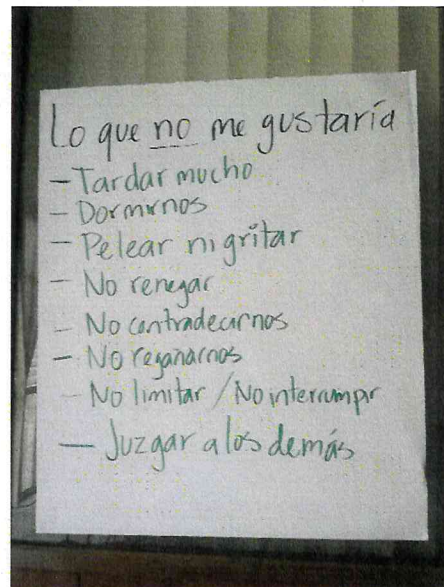 Lo que no me gustaría
- Tardar mucho
- Dormirnos
- Pelear ni gritar
- No renegar
- No contradecirnos
- No regañarnos
- No limitar / No interrumpir
- Juzgar a los demás